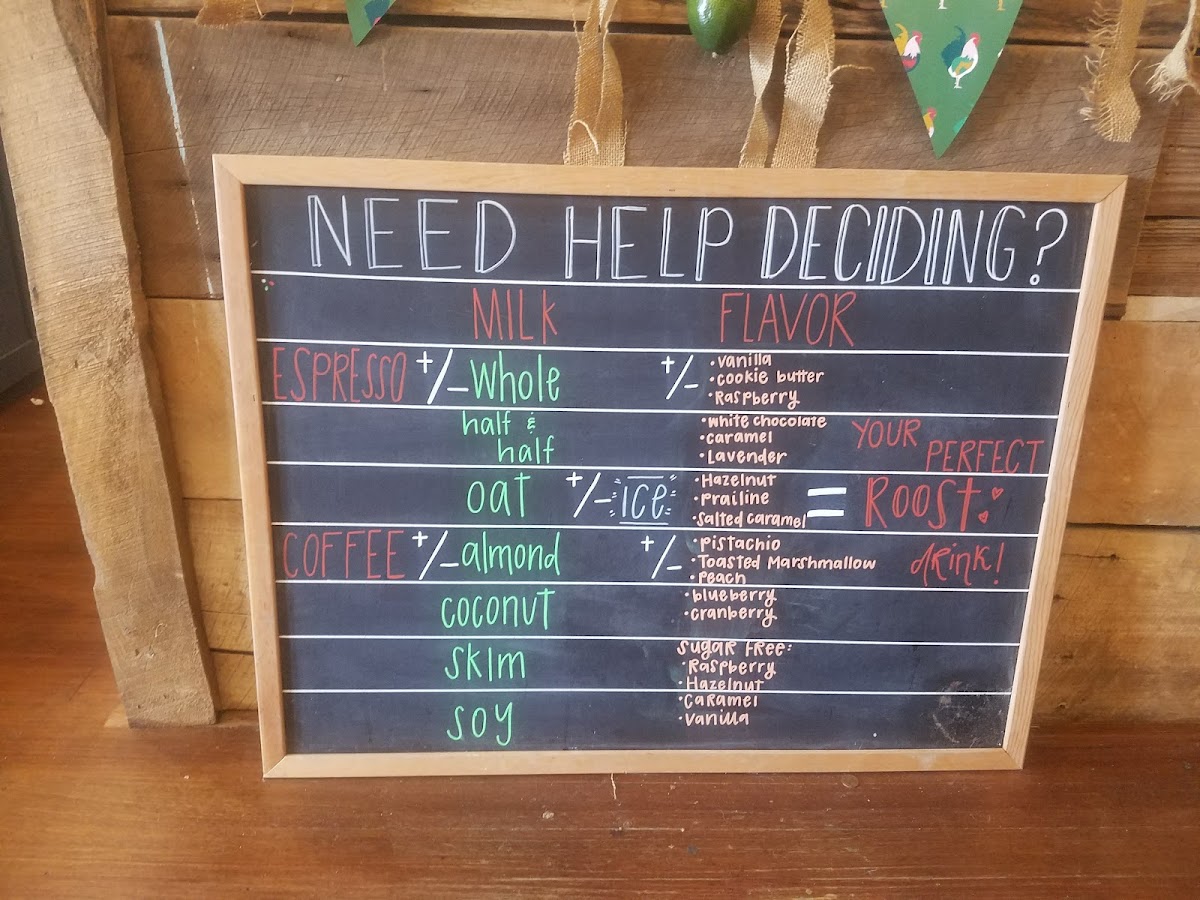 NEED HELP DECIDING?
MILK
FLAVOR
ESPRESSO +/- Whole
half &
half
oat
COFFEE +/- almond
coconut
skim
soy
+/- ice
+/-
• vanilla
• cookie butter
• Raspberry
• white chocolate
• caramel
• Lavender
• Hazelnut
• Prailine
• Salted caramel
+/-
• Pistachio
• Toasted Marshmallow
• Peach
• blueberry
• cranberry
Sugar Free:
• Raspberry
• Hazelnut
• Caramel
• Vanilla
=
YOUR
PERFECT
Roost
drink!